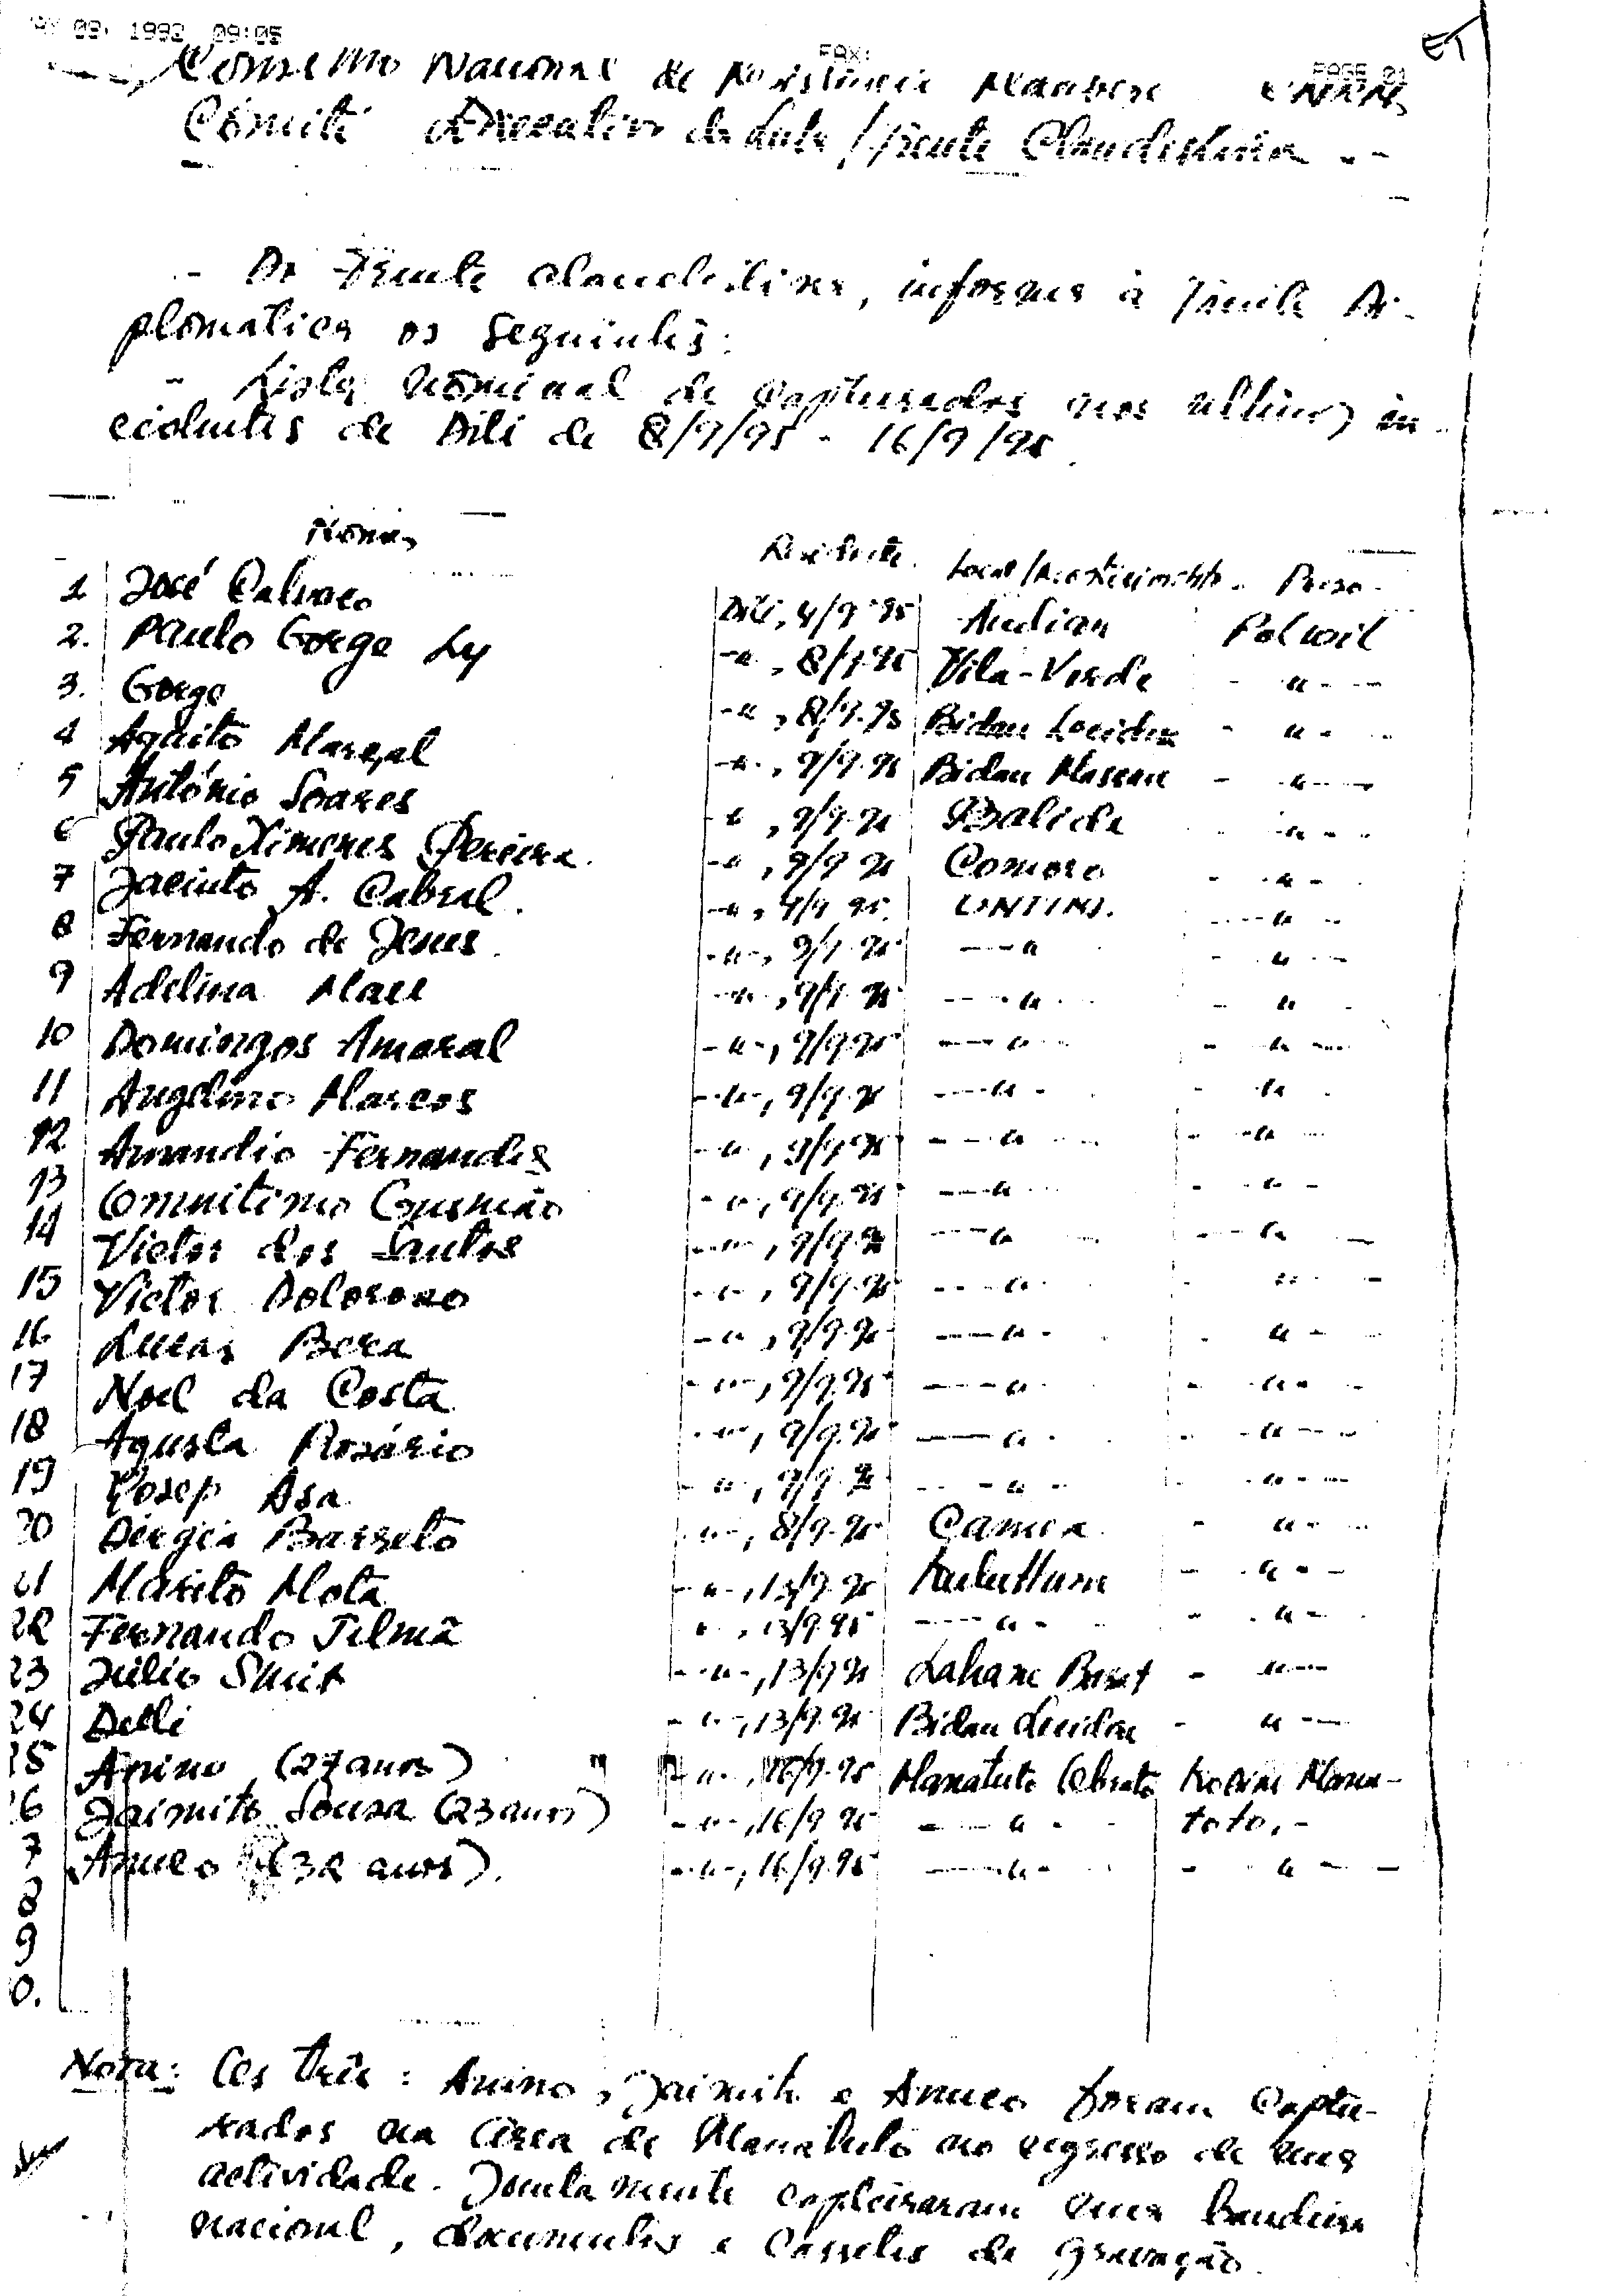 09, 1992 09:05 FAX: PAGE 01
ET
Nacional de Resistencia Maubere CNRM
Comité Executivo da Luta / Frente Clandestina - -
- Da Frente Clandestina, informa à Frente Di-
plomatica os seguintes:
- Lista Nominal de capturados nos ultimos in-
cidentes de Dili de 8/9/95 - 16/9/95.
Nomes Residente Local/Acontecimento. Preso-
1 José Calvaro Dili, 4/9-95 Audian Polwil
2. Paulo Gorge Ly -"-, 8/9-95 Vila-Verde - " - -
3. Gorge -"-, 8/9-95 Bidau Lecidere - " -
4 Aquito Marçal -"-, 9/9-95 Bidau Massau - " -
5 António Soares -"-, 9/9-95 Balide - " -
6 Paulo Ximenes Pereira -"-, 9/9-95 Comoro - " -
7 Jacinto A. Cabral. -"-, 9/9-95 UNTIM. - " -
8 Fernando de Jesus. -"-, 9/9-95 --- " - " -
9 Adelina -"-, 9/9-95 --- " - " -
10 Domingos Amaral -"-, 9/9-95 --- " - " -
11 Angelino Marcos -"-, 9/9-95 --- " - " -
12 Amandio Fernandes -"-, 9/9-95 --- " - " -
13 Gusmão -"-, 9/9-95 --- " - " -
14 Victor dos Santos -"-, 9/9-95 --- " - " -
15 Victor Doloroso -"-, 9/9-95 --- " - " -
16 Lucas Bera -"-, 9/9-95 --- " - " -
17 Noel da Costa -"-, 9/9-95 --- " - " -
18 Agusta Rosário -"-, 9/9-95 --- " - " -
19 Yosep Asa -"-, 9/9-95 --- " - " -
20 Barreto -"-, 8/9-95 Camea - " -
21 Marito Mota -"-, 13/9-95 Kuluhun - " -
22 Fernando Tilmã -"-, 13/9-95 --- " - " -
23 Júlio -"-, 13/9-95 Lahane Barat - " -
24 Delli -"-, 13/9-95 Bidau Lecidere - " -
25 Anino (27 anos) -"-, 16/9-95 Manatuto Kodim Mana-
26 Jaimito Sousa (23 anos) -"-, 16/9-95 --- " - tuto, -
7 Anuco (32 anos). -"-, 16/9-95 --- " - - " -
8
9
0.
Nota: Os três: Anino, Jaimito e Anuco foram captu-
rados na área de Manatuto no regresso de uma
actividade. Juntamente capturaram uma bandeira
nacional, documentos e Cassetes de gravação.